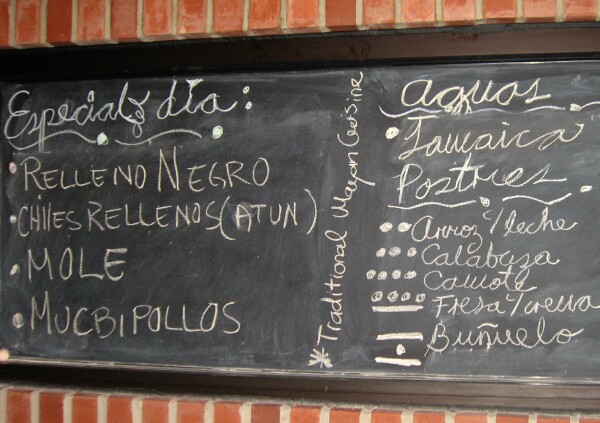 Especial d día:
RELLENO NEGRO
CHILES RELLENOS (ATUN)
MOLE
MUCBIPOLLOS
* Traditional Mayan Cuisine
aguas
Jamaica
Postres
Arroz y/leche
Calabaza
Camote
Fresa y crema
Buñuelo